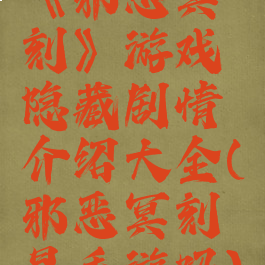 《邪恶冥
刻》游戏
隐藏剧情
介绍大全(
邪恶冥刻